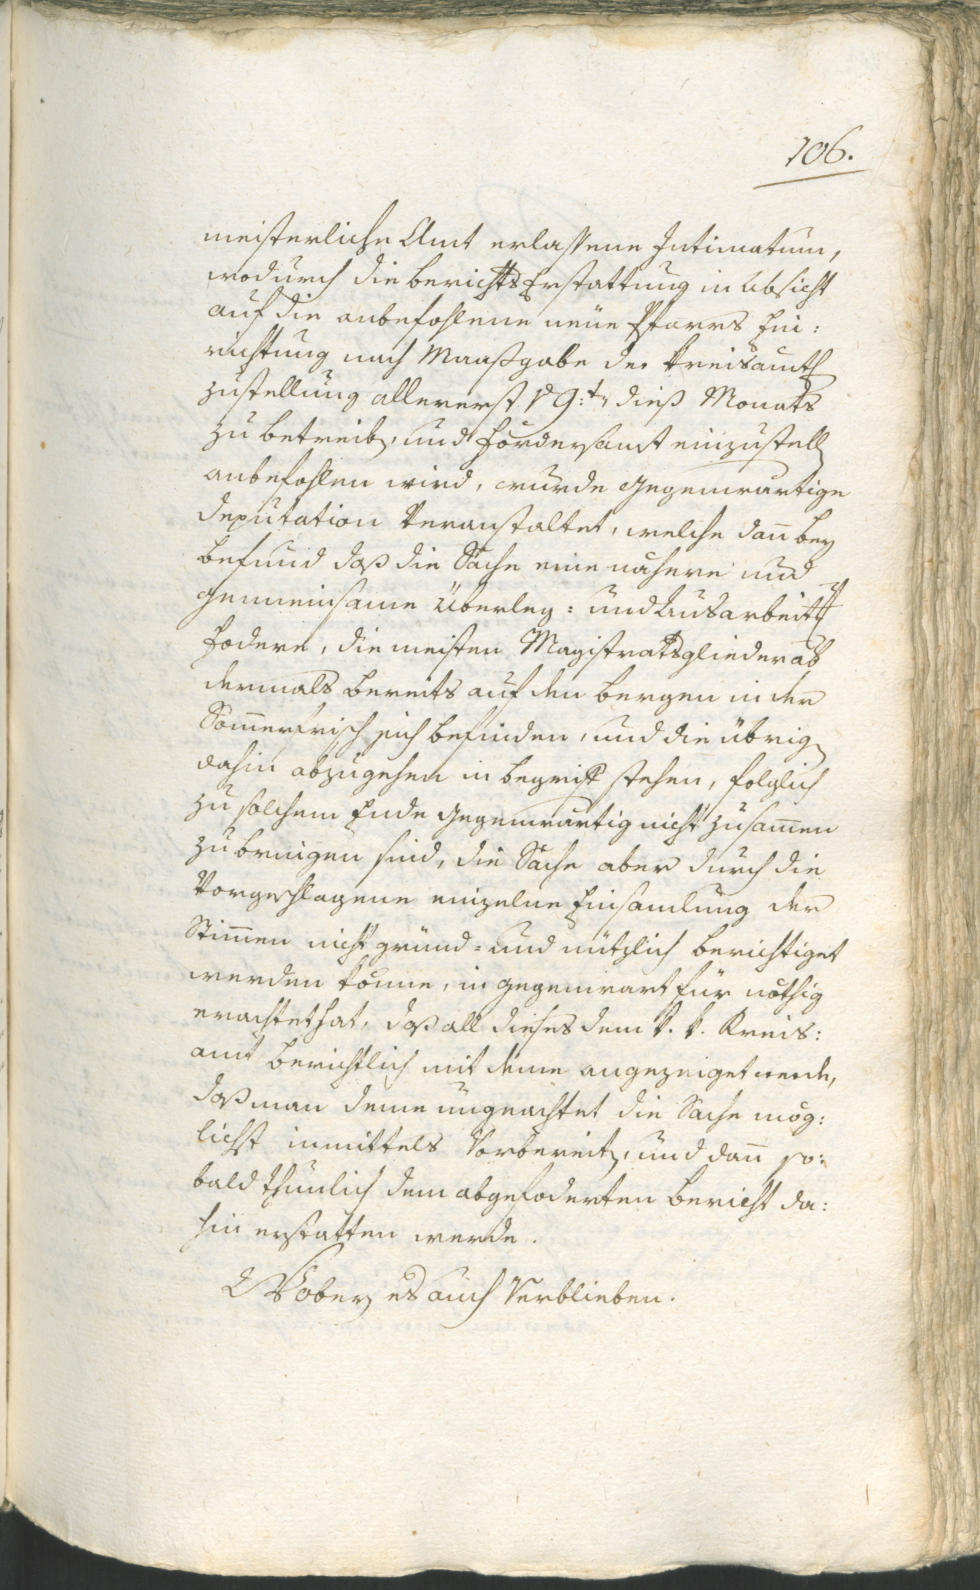 106.
meisterliche Amt erlassene Intimatum,
wodurch die berichts Erstattung in Absicht
auf die anbefohlene neue Pfarrs Ein:
richtung nach Maaßgabe der Kreisamtl
zustellung allererst 19:t dieß Monats
zu betreib, und fördersamst einzustell
anbefohlen wird, wurde gegenwärtige
Deputation veranstaltet, welche dañ bey
befund daß die Sache eine nähere und
gemeinsame Überleg: und Ausarbeit
fodere, die meisten Magistratsglieder ab
dermals bereits auf den bergen in der
Som̃erfrisch sich befinden, und die übrig
dahin abzugehen in begrif stehen, folglich
zu solchem Ende gegenwärtig nicht zusam̃en
zu bringen sind, die Sache aber durch die
vorgeschlagene einzelne Einsamlung der
Stim̃en nicht gründ= und nützlich berichtiget
werden könne, in gegenwart für nöthig
erachtet hat, daß all dieses dem k. k. Kreis:
amt berichtlich mit deme angezeiget werde,
daß man deme ungeachtet die Sache mög:
lichst inmittels vorbereit, und dañ so:
bald thunlich dem abgefoderten bericht da:
hin erstatten werde.
Wobey es auch verblieben.